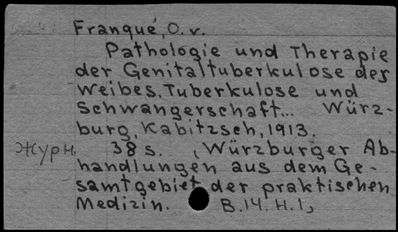 Franqué, O. v.
Pathologie und Therapie
der Genitaltuberkulose des
Weibes. Tuberkulose und
Schwangerschaft... Würz-
burg, Kabitzsch, 1913.
Журн. 38 s. , Würzburger Ab-
handlungen aus dem Ge-
samtgebiet der praktischen
Medizin. B.14. H.1,